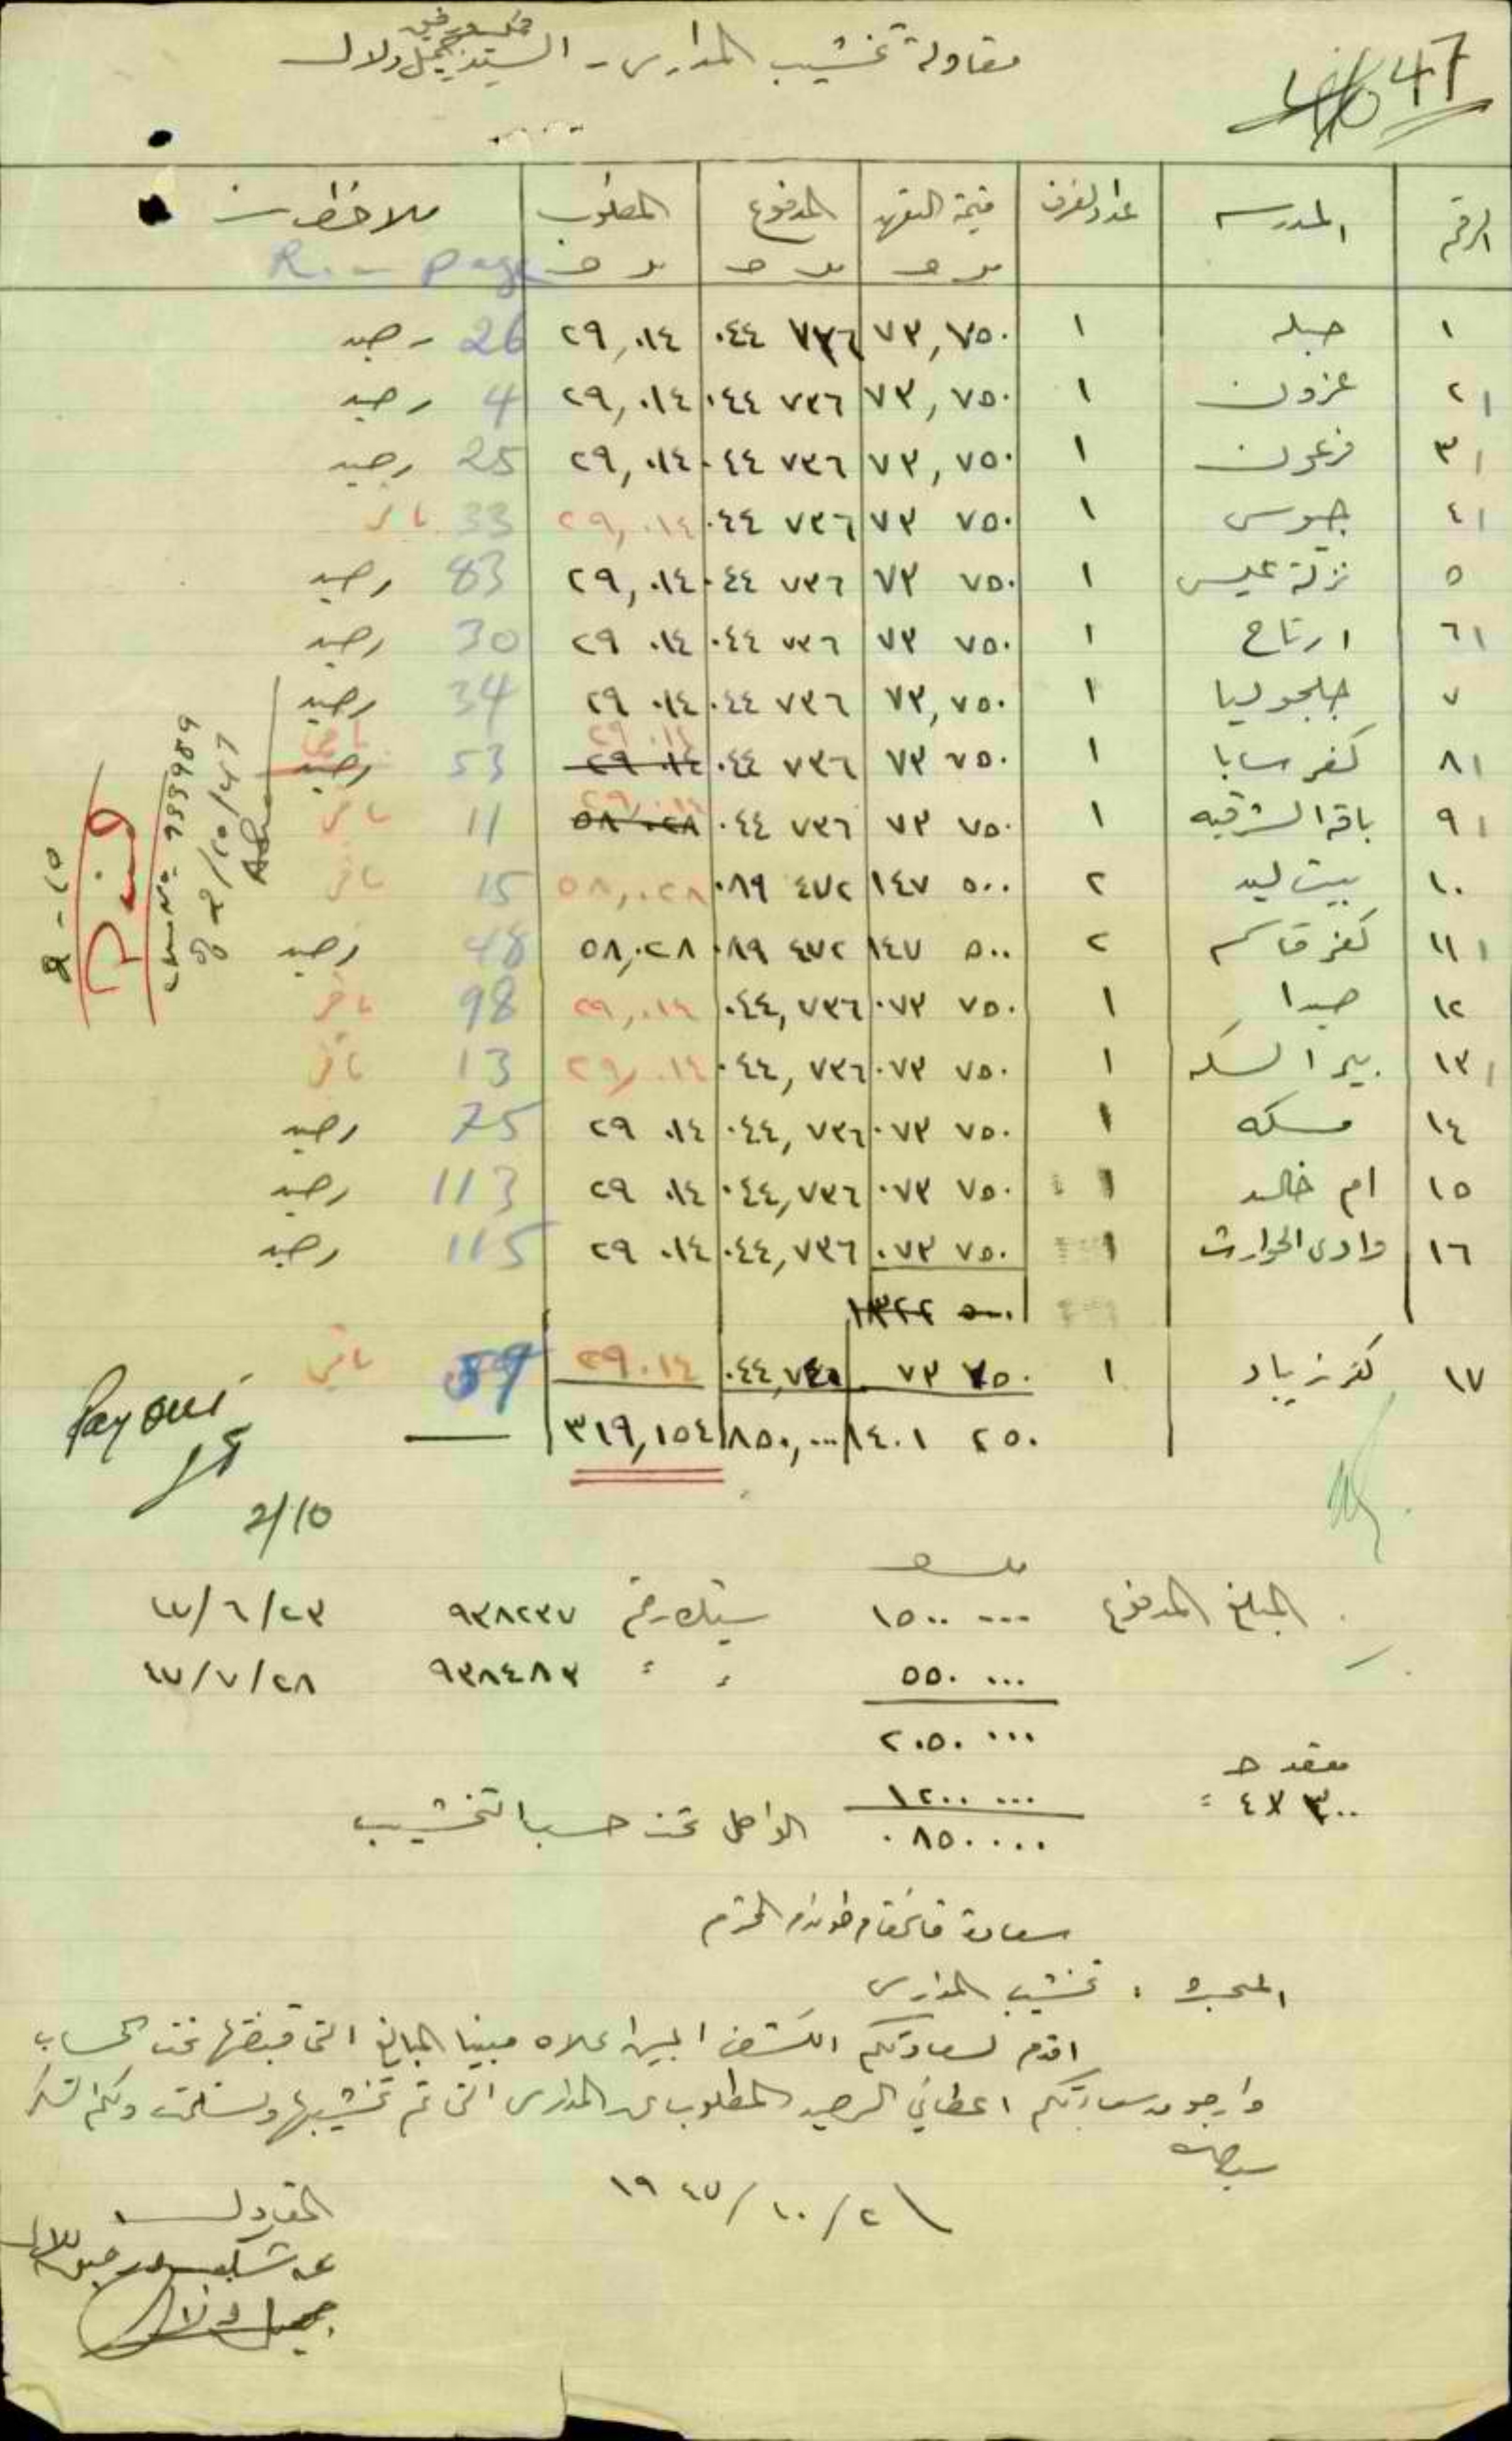 47
مقاولة تخشيب المدارس - السيد جميل ولال
الرقم المدرسه عدد الغرف قيمة التعهد المدفوع المطلوب ملاحظات
R. - page
١ جبله ١ ٧٣,٧٥٠ ٠٤٤ ٧٣٦ ٢٩,٠١٤ 26 رصيد
٢ عزون ١ ٧٣,٧٥٠ ٠٤٤ ٧٣٦ ٢٩,٠١٤ 4 رصيد
٣ فرعون ١ ٧٣,٧٥٠ ٠٤٤ ٧٣٦ ٢٩,٠١٤ 25 رصيد
٤ جيوس ١ ٧٣ ٧٥٠ ٠٤٤ ٧٣٦ ٢٩,٠١٤ 33 باقي
٥ نزلة عيسى ١ ٧٣ ٧٥٠ ٠٤٤ ٧٣٦ ٢٩,٠١٤ 83 رصيد
٦ ارتاح ١ ٧٣ ٧٥٠ ٠٤٤ ٧٣٦ ٢٩ ٠١٤ 30 رصيد
٧ جلجوليا ١ ٧٣,٧٥٠ ٠٤٤ ٧٣٦ ٢٩ ٠١٤ 34 رصيد
٨ كفر سابا ١ ٧٣ ٧٥٠ ٠٤٤ ٧٣٦ ٢٩ ٠١٤ ٢٩.٠١٤ 53 رصيد باقي
٩ باقة الشرقيه ١ ٧٣ ٧٥٠ ٠٤٤ ٧٣٦ ٥٨ ٠٢٨ ٢٩,٠١٤ 11 باقي
١٠ بيت ليد ٢ ١٤٧ ٥٠٠ ٠٨٩ ٤٧٢ ٥٨,٠٢٨ 15 باقي
١١ كفر قاسم ٢ ١٤٧ ٥٠٠ ٠٨٩ ٤٧٢ ٥٨,٠٢٨ 48 رصيد
١٢ صيدا ١ ٠٧٣ ٧٥٠ ٠٤٤,٧٣٦ ٢٩,٠١٤ 98 باقي
١٣ بير السكه ١ ٠٧٣ ٧٥٠ ٠٤٤,٧٣٦ ٢٩,٠١٤ 13 باقي
١٤ مسكه ١ ٠٧٣ ٧٥٠ ٠٤٤,٧٣٦ ٢٩ ٠١٤ 75 رصيد
١٥ ام خالد ١ ٠٧٣ ٧٥٠ ٠٤٤,٧٣٦ ٢٩ ٠١٤ 113 رصيد
١٦ وادي الحوارث ١ ٠٧٣ ٧٥٠ ٠٤٤,٧٣٦ ٢٩ ٠١٤ 115 رصيد
١٣٢٢ ٥٠٠
١٧ كفر زيباد ١ ٧٣ ٧٥٠ ٠٤٤,٧٤٠ ٢٩.٠١٤ 59 باقي
١٤٠١ ٢٥٠ ٨٥٠,٠٠٠ ٣١٩,١٥٤
Paid
939989
2/10/47
2-10
2/10
المبلغ المدفوع ١٥٠٠ ٠٠٠ شيك رقم ٩٣٨٢٣٧ ٤٧/٦/٢٣
٥٥٠ ٠٠٠ " " ٩٣٨٤٨٣ ٤٧/٧/٢٨
٢٠٥٠ ٠٠٠
٣٠٠ × ٤ = ١٢٠٠ ٠٠٠
٠٨٥٠ ٠٠٠ الواصل تحت حساب التخشيب
سعادة قائمقام طولكرم المحترم
المبحث : تخشيب المدارس
اقدم لسعادتكم الكشف المبين اعلاه مبينا المبالغ التي قبضتها تحت الحساب
وارجو من سعادتكم اعطائي الرصيد المطلوب عن المدارس التي تم تخشيبها وتسلمت ولكم الشكر
٢/١٠/١٩٤٧
المقاول
جميل ولال